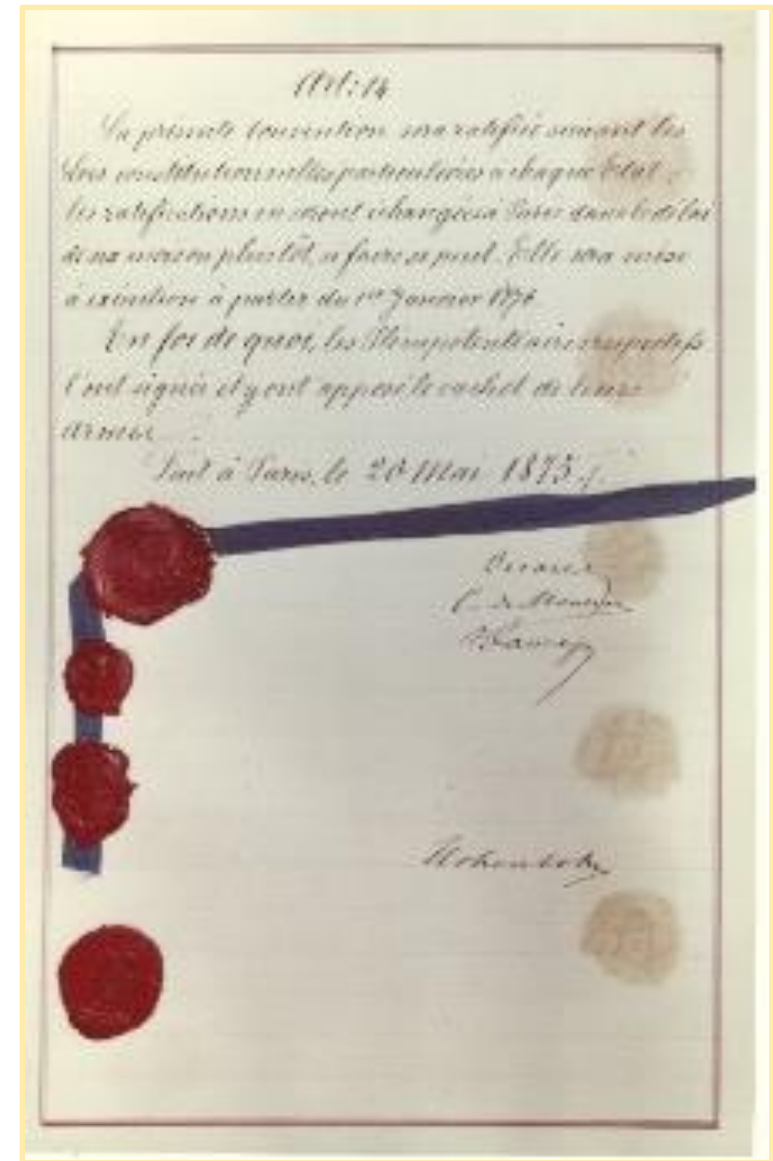 Art: 14
La présente convention sera ratifiée suivant les
Lois constitutionnelles particulières à chaque Etat;
les ratifications en seront échangées à Paris dans le délai
de six mois ou plus tôt, si faire se peut. Elle sera mise
à exécution à partir du 1er Janvier 1876
En foi de quoi, les Plénipotentiaires respectifs
l'ont signée et y ont apposé le cachet de leurs
armes.
Fait à Paris, le 20 Mai 1875.
Decazes
Hohenlohe